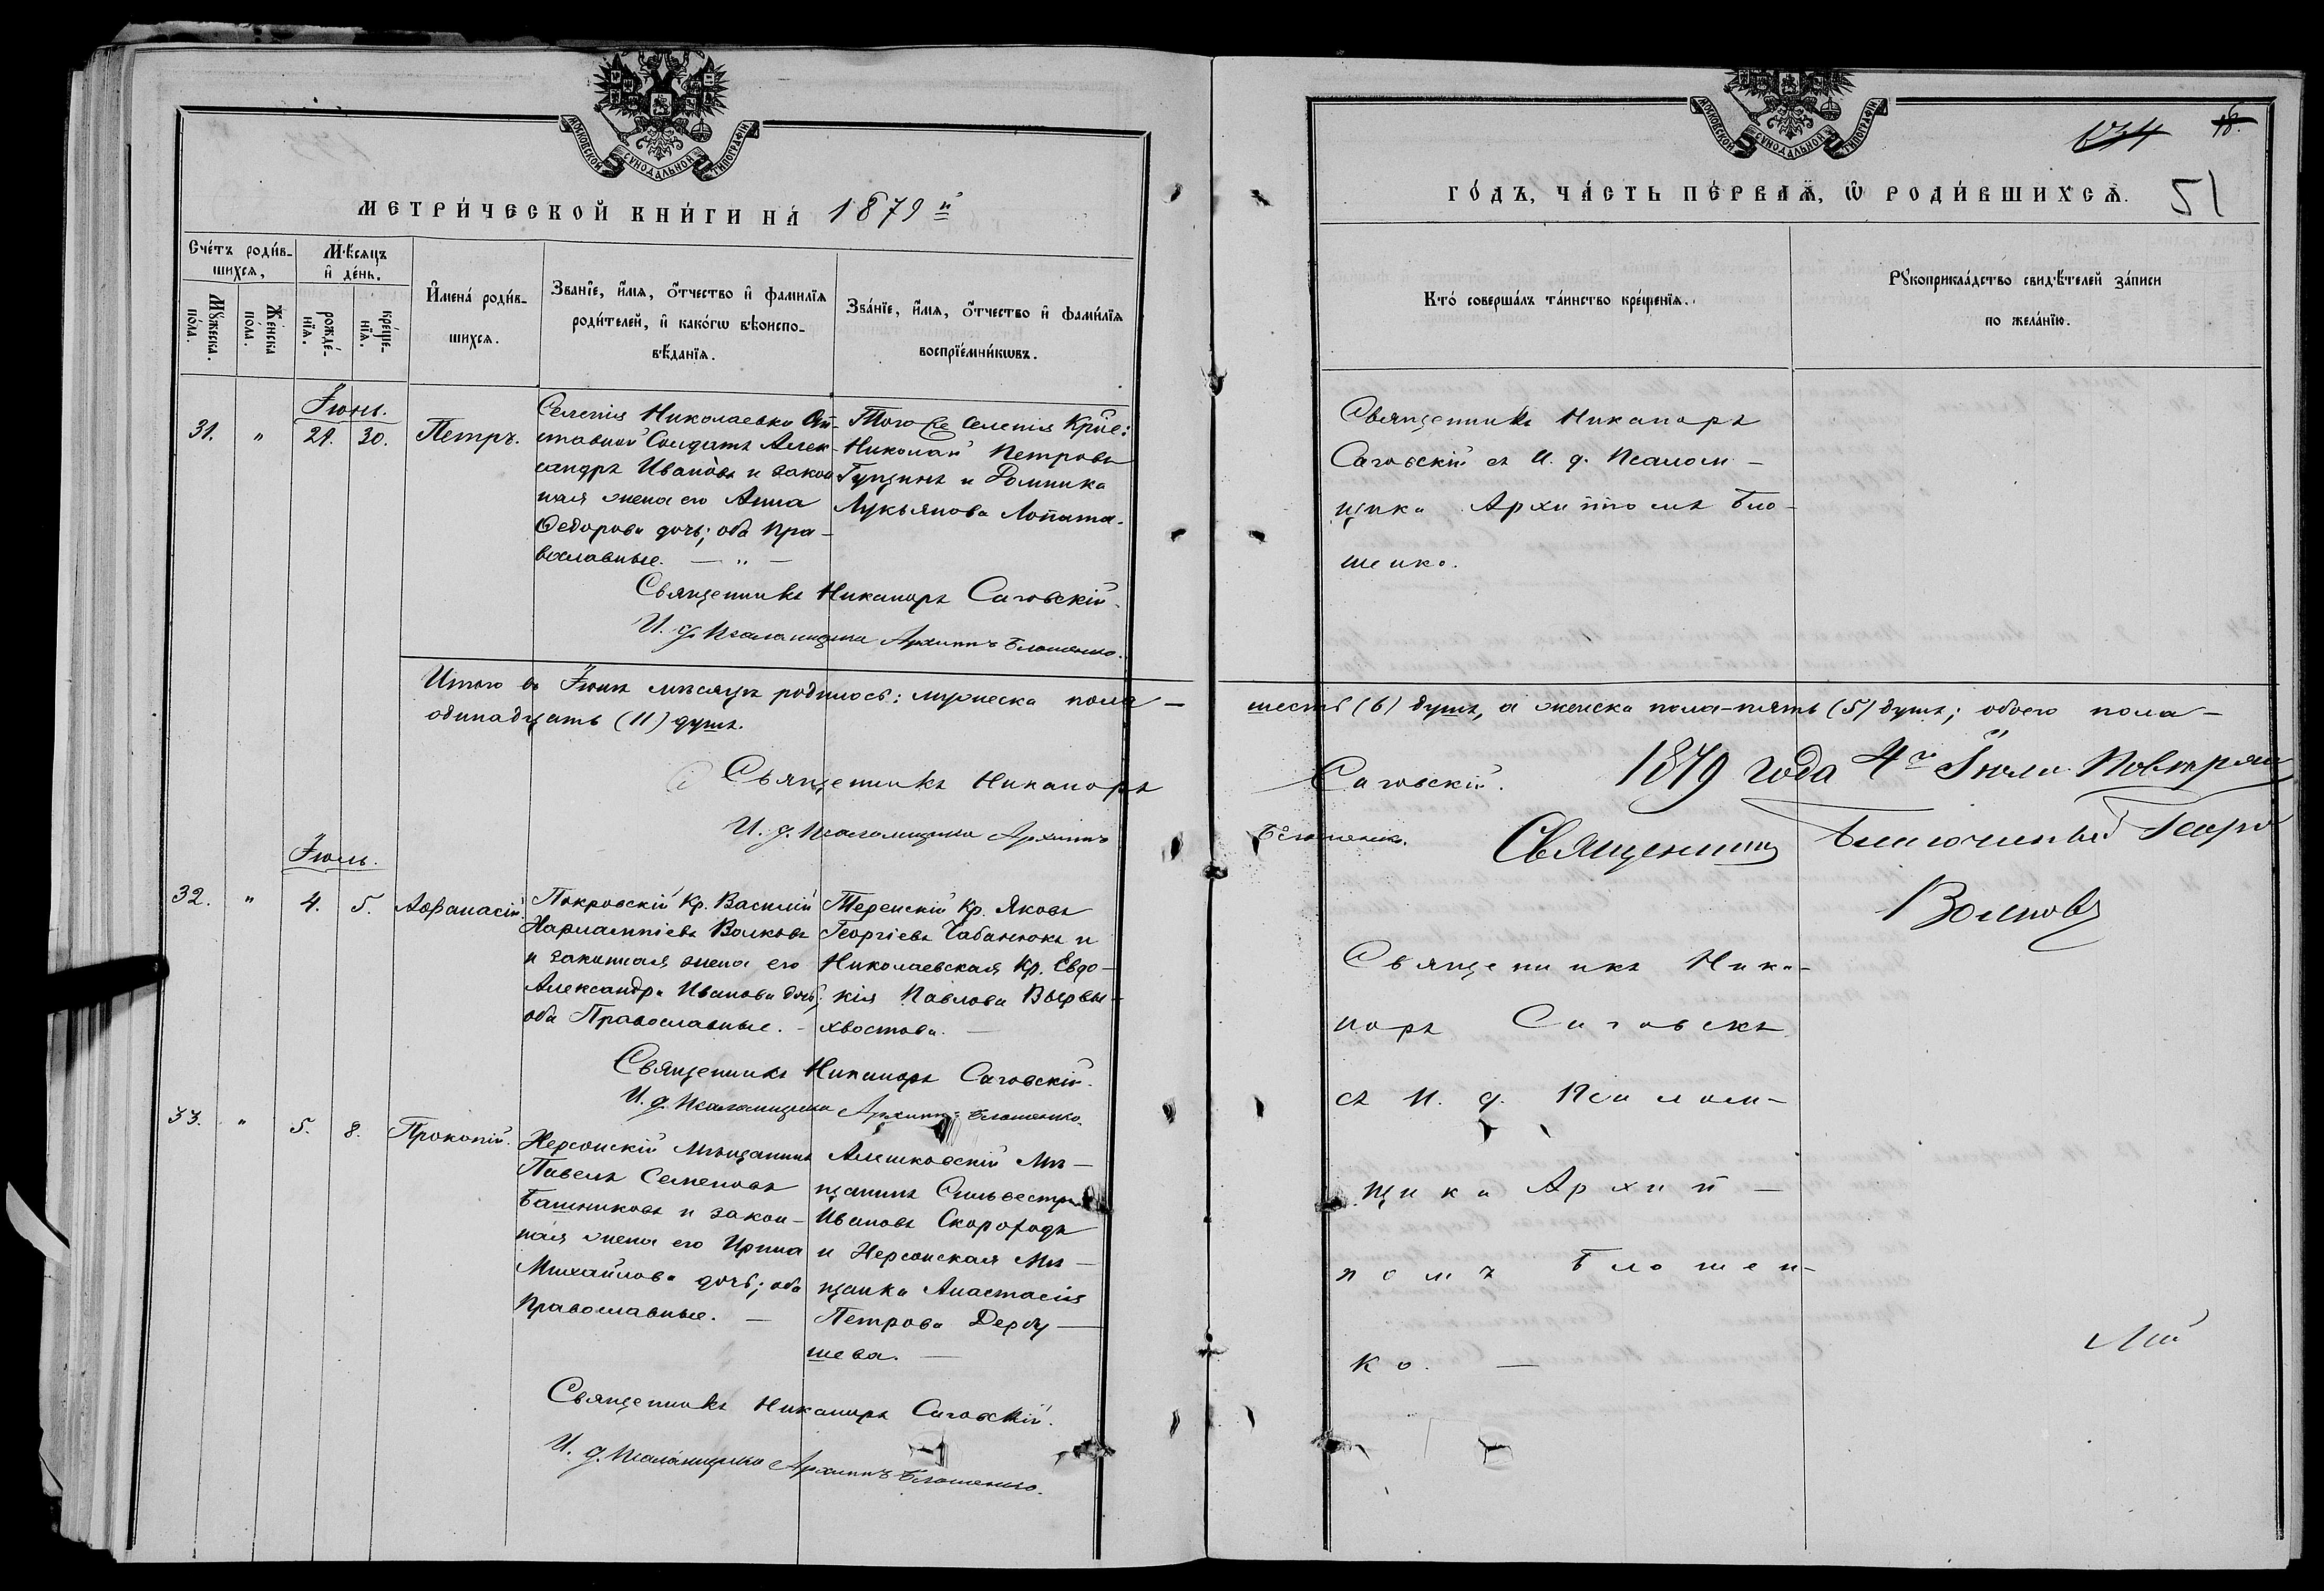 МОСКОВСКОЙ СѴНОДАЛЬНОЙ ТИПОГРАФІИ
МЕТРИ́ЧЕСКОЙ КНИ́ГИ НА́ 1879й
Сче́тъ роди́в-
шихсѧ,
Мѣ́сѧцъ
и҆ де́нь.
Мꙋ́жеска
по́ла.
Же́нска
по́ла.
рожде́-
нїѧ.
креще́-
нїѧ.
И҆мена̀ роди́в-
шихсѧ.
Зва́нїе, и҆́мѧ, ѻ҆́тчество и҆ фами́лїѧ
роди́телей, и҆ како́гѡ вѣроиспо-
вѣ́данїѧ.
Зва́нїе, и҆́мѧ, ѻ҆́тчество и҆ фами́лїѧ
воспрїе́мникѡвъ.
Іюнь.
31. " 29. 30. Петръ.
Селенія Николаевки От-
ставной Солдатъ Алек-
сандръ Ивановъ и закон
ная жена его Анна
Ѳедорова дочь; оба пра-
вославные. — " —
Того же Селенія Крüе:
Николай Петровъ
Гунинъ и Домника
Лукьянова Лопата.
Священникъ Никаноръ Саговскій.
И. д. Псаломщика Архипъ Блошенко.
Итого въ Іюнѣ мѣсяцѣ родилось: мужеска пола —
одинадцать (11) душъ.
Священникъ Никаноръ
И. д. Псаломщика Архипъ
Іюль.
32. " 4. 5. Аѳанасій.
Покровскій Кр. Василій
Харлампіевъ Волковъ
и законная жена его
Александра Иванова дочь;
оба Православные. -
Теренскій Кр. Яковъ
Георгіевъ Чабанюкъ и
Николаевская Кр. Евдо-
кія Павлова Вырвы-
хвостова. —
Священникъ Никаноръ Саговскій.
И. д. Псаломщика Архипъ Блошенко.
33. " 5. 8. Прокопій.
Херсонскій мѣщанинъ
Павелъ Семеновъ
Башниковъ и закон-
ная жена его Ирина
Михайлова дочь; оба
Православные. —
Алешковскій Мѣ-
щанинъ Сильвестръ
Ивановъ Скороходъ
и Херсонская Мѣ-
щанка Анастасія
Петрова
шева. —
Священникъ Никаноръ Саговскій.
И. д. Псаломщика Архипъ Блошенко.
МОСКОВСКОЙ СѴНОДАЛЬНОЙ ТИПОГРАФІИ
ГО́ДЪ, ЧА́СТЬ ПЕ́РВАѦ, Ѽ РОДИ́ВШИХСѦ.
51
Кто̀ соверша́лъ та́инство креще́нїѧ.
Рꙋкоприкла́дство свидѣ́телей за́писи
по жела́нїю.
Священникъ Никаноръ
Саговскій съ И. д. Псалом-
щика Архипомъ Бло-
шенко.
шесть (6) душъ, а женска пола-пять (5) душъ; обоего пола —
Саговскій.
Блошенко.
1879 года 4го Іюля Повѣрялъ
Священникъ Благочинный Георгій
Волковъ
Священникъ Ника-
норъ Саговскъ
съ И. д. Псалом-
щика Архи-
помъ Блошен-
ко. —